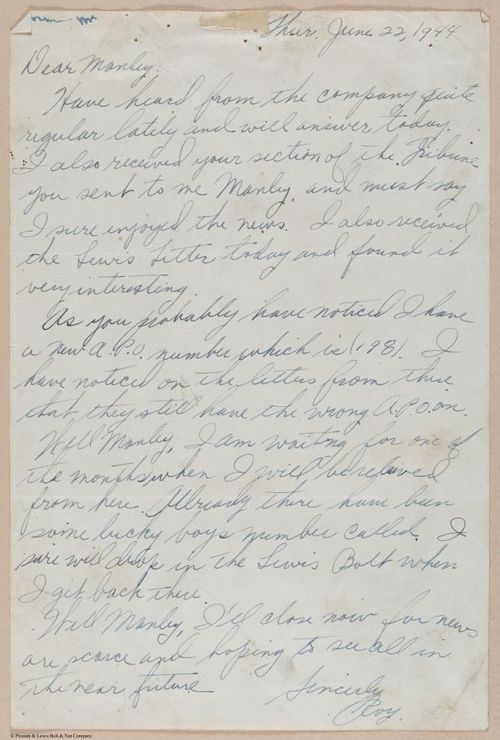 Thur. June 22, 1944
Dear Manley:
Have heard from the company quite
regular lately and will answer today.
I also received your section of the Tribune
you sent to me Manley, and must say
I sure enjoyed the news. I also received
the Lewis Letter today and found it
very interesting.
As you probably have noticed I have
a new A.P.O. number which is 1981. I
have noticed on the letters from there
that they still have the wrong A.P.O. on.
Well Manley, I am waiting for one of
the months when I will be relieved
from here. Already there have been
some lucky boys number called. I
sure will drop in the Lewis Bolt when
I get back there.
Well Manley, I'll close now for news
are scarce and hoping to see all in
the near future
Sincerly
Roy.
© Pioneers & Lewis Bolt & Nut Company